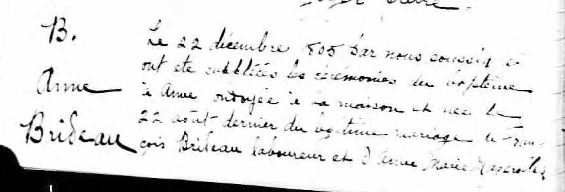 B.
Anne
Brideau
Le 22 décembre 1808 par nous soussig é
ont été supplées les cérémonies du baptême
à Anne ondoyée à la maison et née le
22 août dernier du légitime mariage de Fran-
çois Brideau laboureur et d'Anne Marie